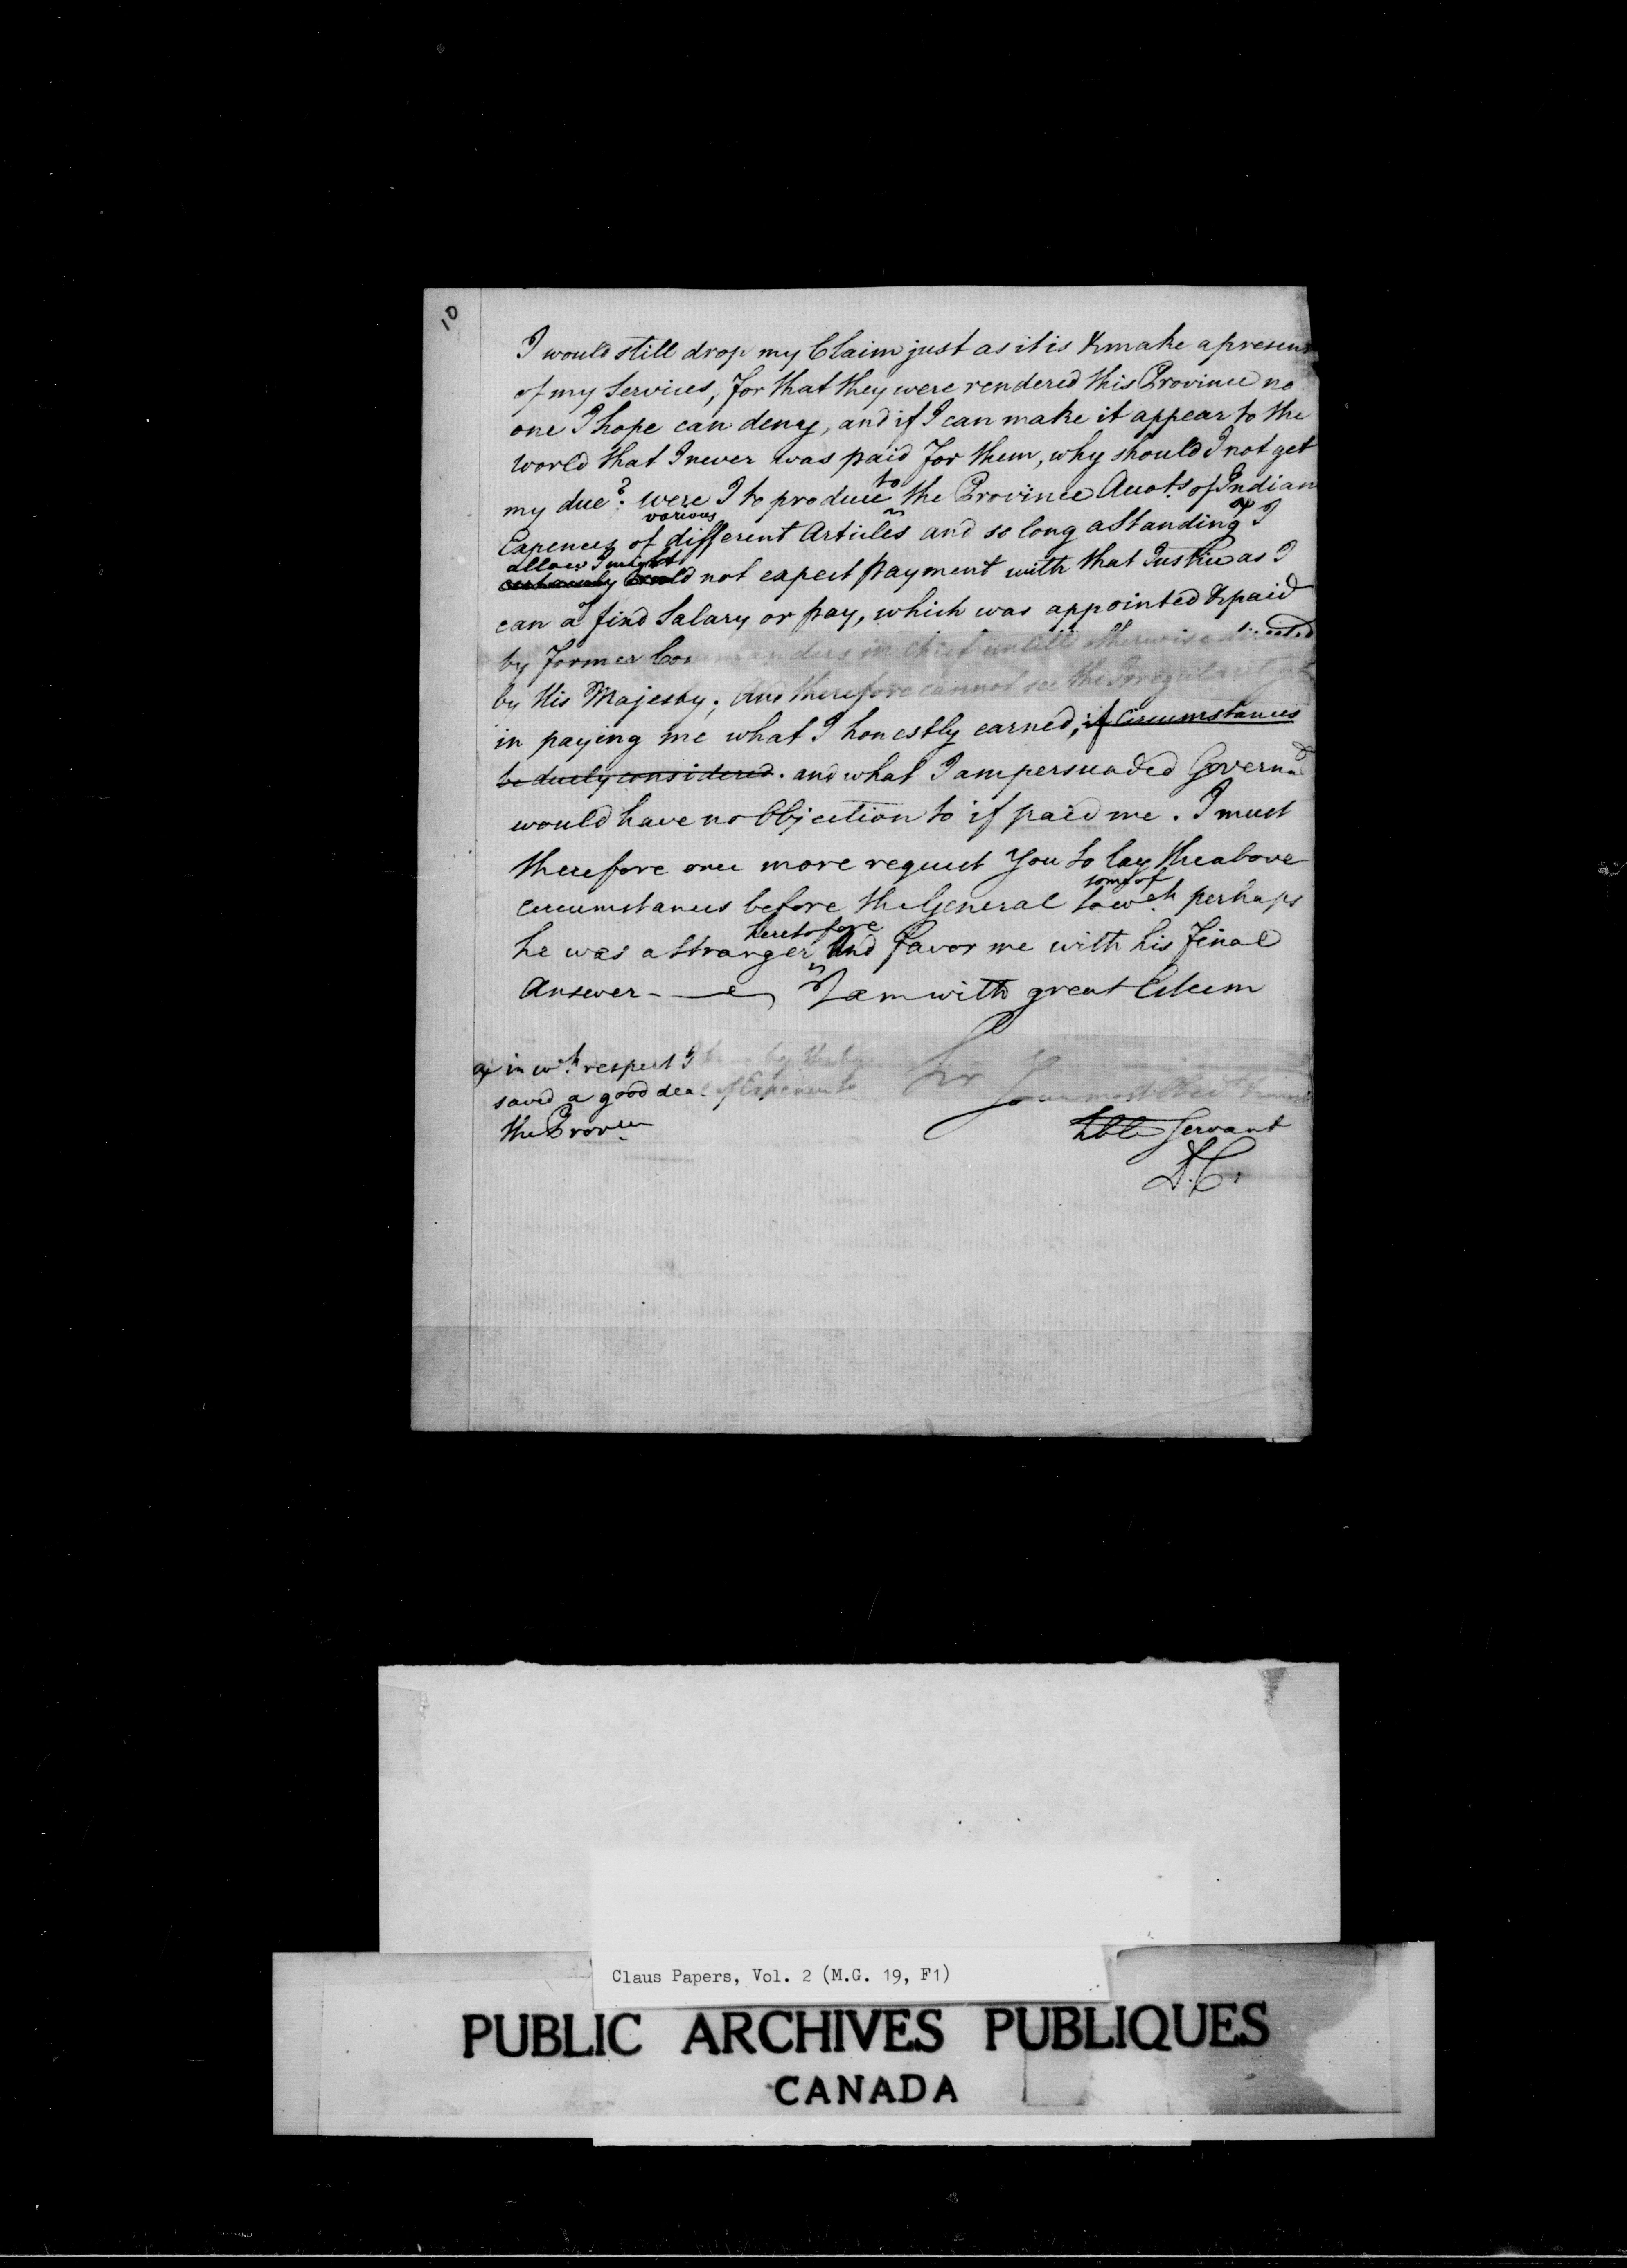 10
I would still drop my Claim just as it is & make a present
of my Services, for that they were rendered this Province no
one I hope can deny, and if I can make it appear to the
world that I never was paid for them, why should I not get
my due? were I to produce to the Province Accots. of Indian
various
Expences of different Articles and so long a Standing I
allow I might
certainly could not expect payment with that Justice as I
can a fixd Salary or pay, which was appointed & paid
by former Commanders in chief untill otherwise directed
by His Majesty; And therefore cannot see the Irregularity
in paying me what I honestly earned, if Circumstances
be duely considered. and what I am persuaded Governmt
would have no Objection to if paid me. I must
therefore once more request you to lay the above
circumstances before the General to some of wch perhaps
he was a Stranger heretofore And favor me with his final
Answer - I am with great Esteem
Sir
in wch respect I have by the by
saved a good deal of Expence to
the Provce
Your most Obedt
hble Servant
D.C.
Claus Papers, Vol. 2 (M.G. 19, F1)
PUBLIC ARCHIVES PUBLIQUES
CANADA